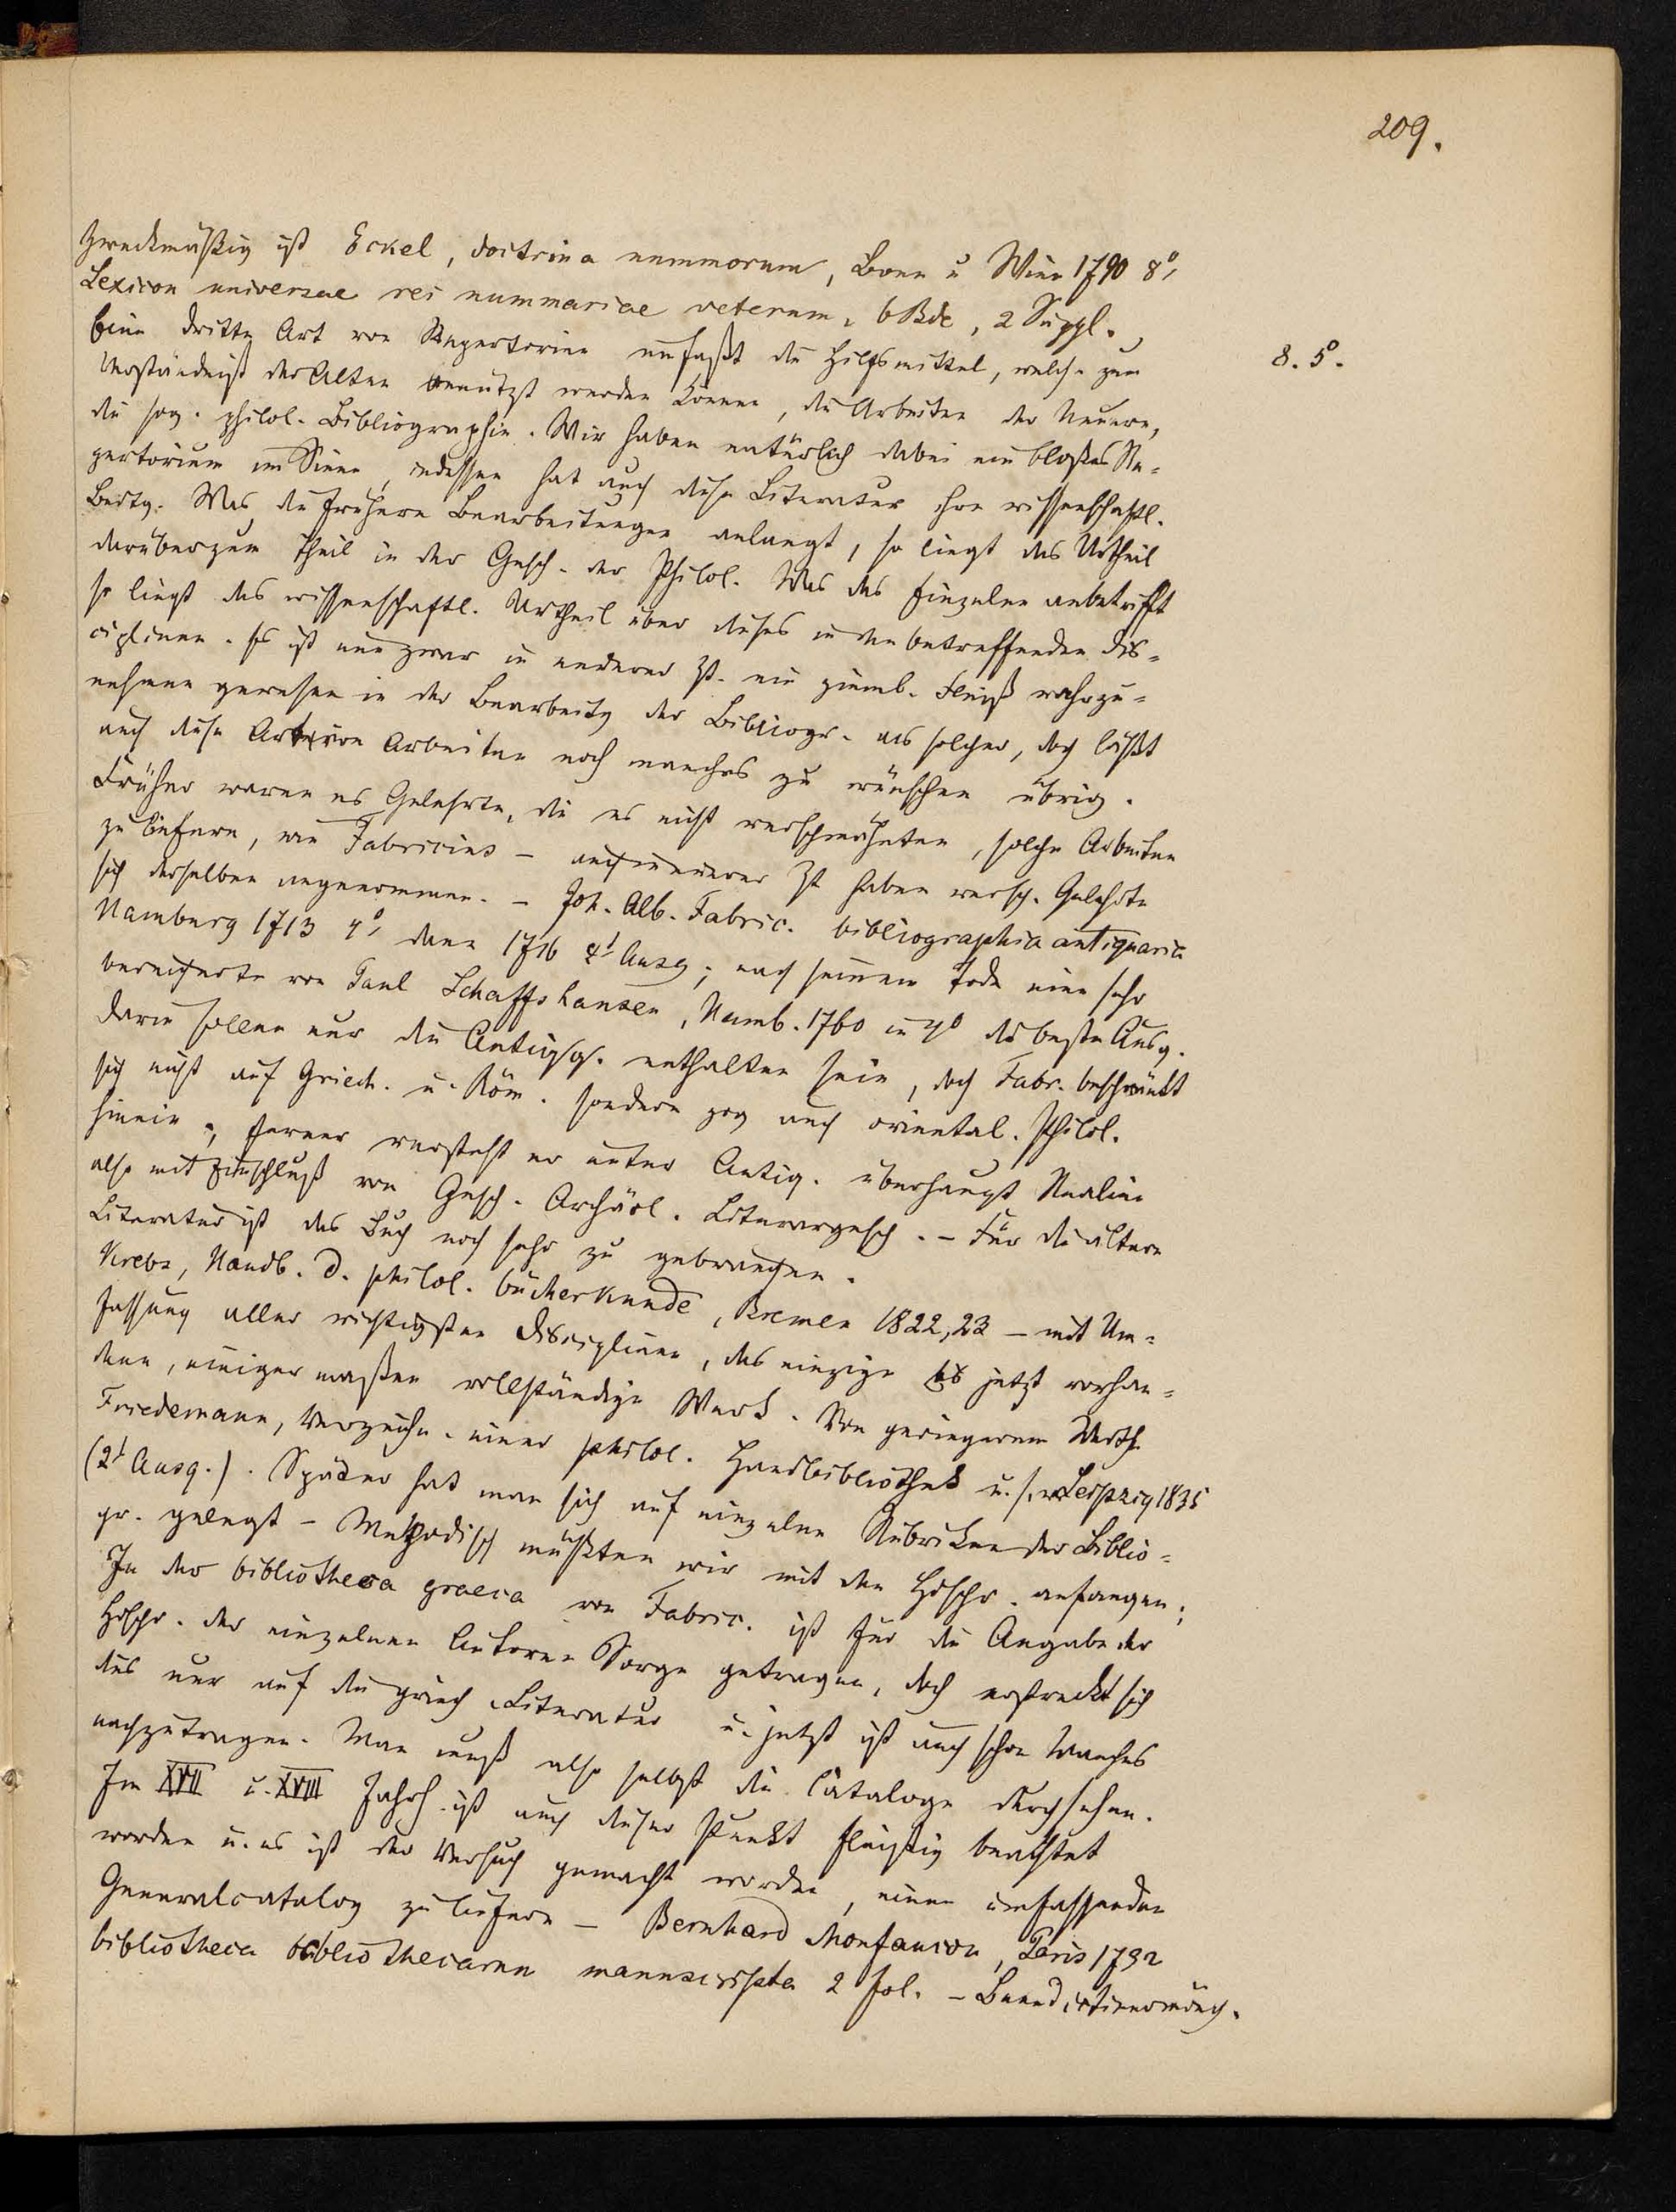 209.
Zweckmäßig ist Eckel, doctrina nummorum, Bonn u Wien 1790 8°,
Lexicon universae rei nummariae veterum, 6 Bde, 2 Suppl.
Eine dritte Art von Repertorien umfaßt die Hilfsmittel, welche zum
8. 5°.
Verständniß der Alten benutzt werden können, die Arbeiten der Neuern,
die sog. philol. Bibliographie. Wir haben natürlich dabei ein bloßes Re-
pertorium im Sinne, indessen hat auch diese Literatur ihre wissenschaftl.
Bedtg. Was die frühern Bearbeitungen anlangt, so liegt das Urtheil
darüber zum Theil in der Gesch. der Philol. Was das Einzelne anbetrifft
so liegt das wissenschaftl. Urtheil über dieses in den betreffenden Dis-
ciplinen. Es ist nun zwar in neuerer Zt. ein ziemL. Fleiß wahrzu-
nehmen gewesen in der Bearbeitg der Bibliogr. als solcher, doch läßt
auch diese Art von Arbeiten noch manches zu wünschen übrig.
Früher waren es Gelehrte, die es nicht verschmähten, solche Arbeiten
zu liefern, wie Fabricius – auch in neuerer Zt haben versch. Gelehrte
sich derselben angenommen. – Joh. Alb. Fabric. bibliographia antiquaria
Hamburg 1713 4°, dann 1716 2t Ausg; nach seinem Tode eine sehr
bereicherte von Paul Schaffshausen, Hamb. 1760 in 4° die beste Ausg.
Darin sollen nur die Antiqq. enthalten sein, doch Fabr. beschränkt
sich nicht auf Griech. u. Röm. sondern zog auch oriental. Philol.
hinein, ferner versteht er unter Antiq. überhaupt Realien
also mit Einschluß von Gesch. Archäol. Literargesch. – Für die ältere
Literatur ist das Buch noch sehr zu gebrauchen.
Krebs, Handb. d. philol. bücherkunde, Bremen 1822, 23 – mit Um-
fassung aller wichtigsten Disciplinen, das einzige bis jetzt vorhan-
dene, einiger maßen vollständige Werk. Von geringerem Werth
Friedemann, Verzeichn. einer philol. Handbibliothek u.s.w Leipzig 1835
(2t Ausg.). Später hat man sich auf einzelne Rubriken der Biblio-
gr. gelegt – Methodisch müßten wir mit den Hdschr. anfangen;
In der bibliotheca graeca von Fabric. ist für die Angabe der
Hdschr. der einzelnen Autoren Sorge getragen, doch erstreckt sich
dies nur auf die griech. Literatur u. jetzt ist auch schon Manches
nachzutragen. Man muß also selbst die Cataloge durchsehen.
Im XVII u. XVIII Jahrh. ist auch dieser Punkt fleißig beachtet
worden u. es ist der Versuch gemacht worden, einen umfassenden
Generalcatalog zu liefern – Bernhard Monfaucon, Paris 1732
bibliotheca bibliothecarum manuscripta 2 fol. – Benedictinermönch.